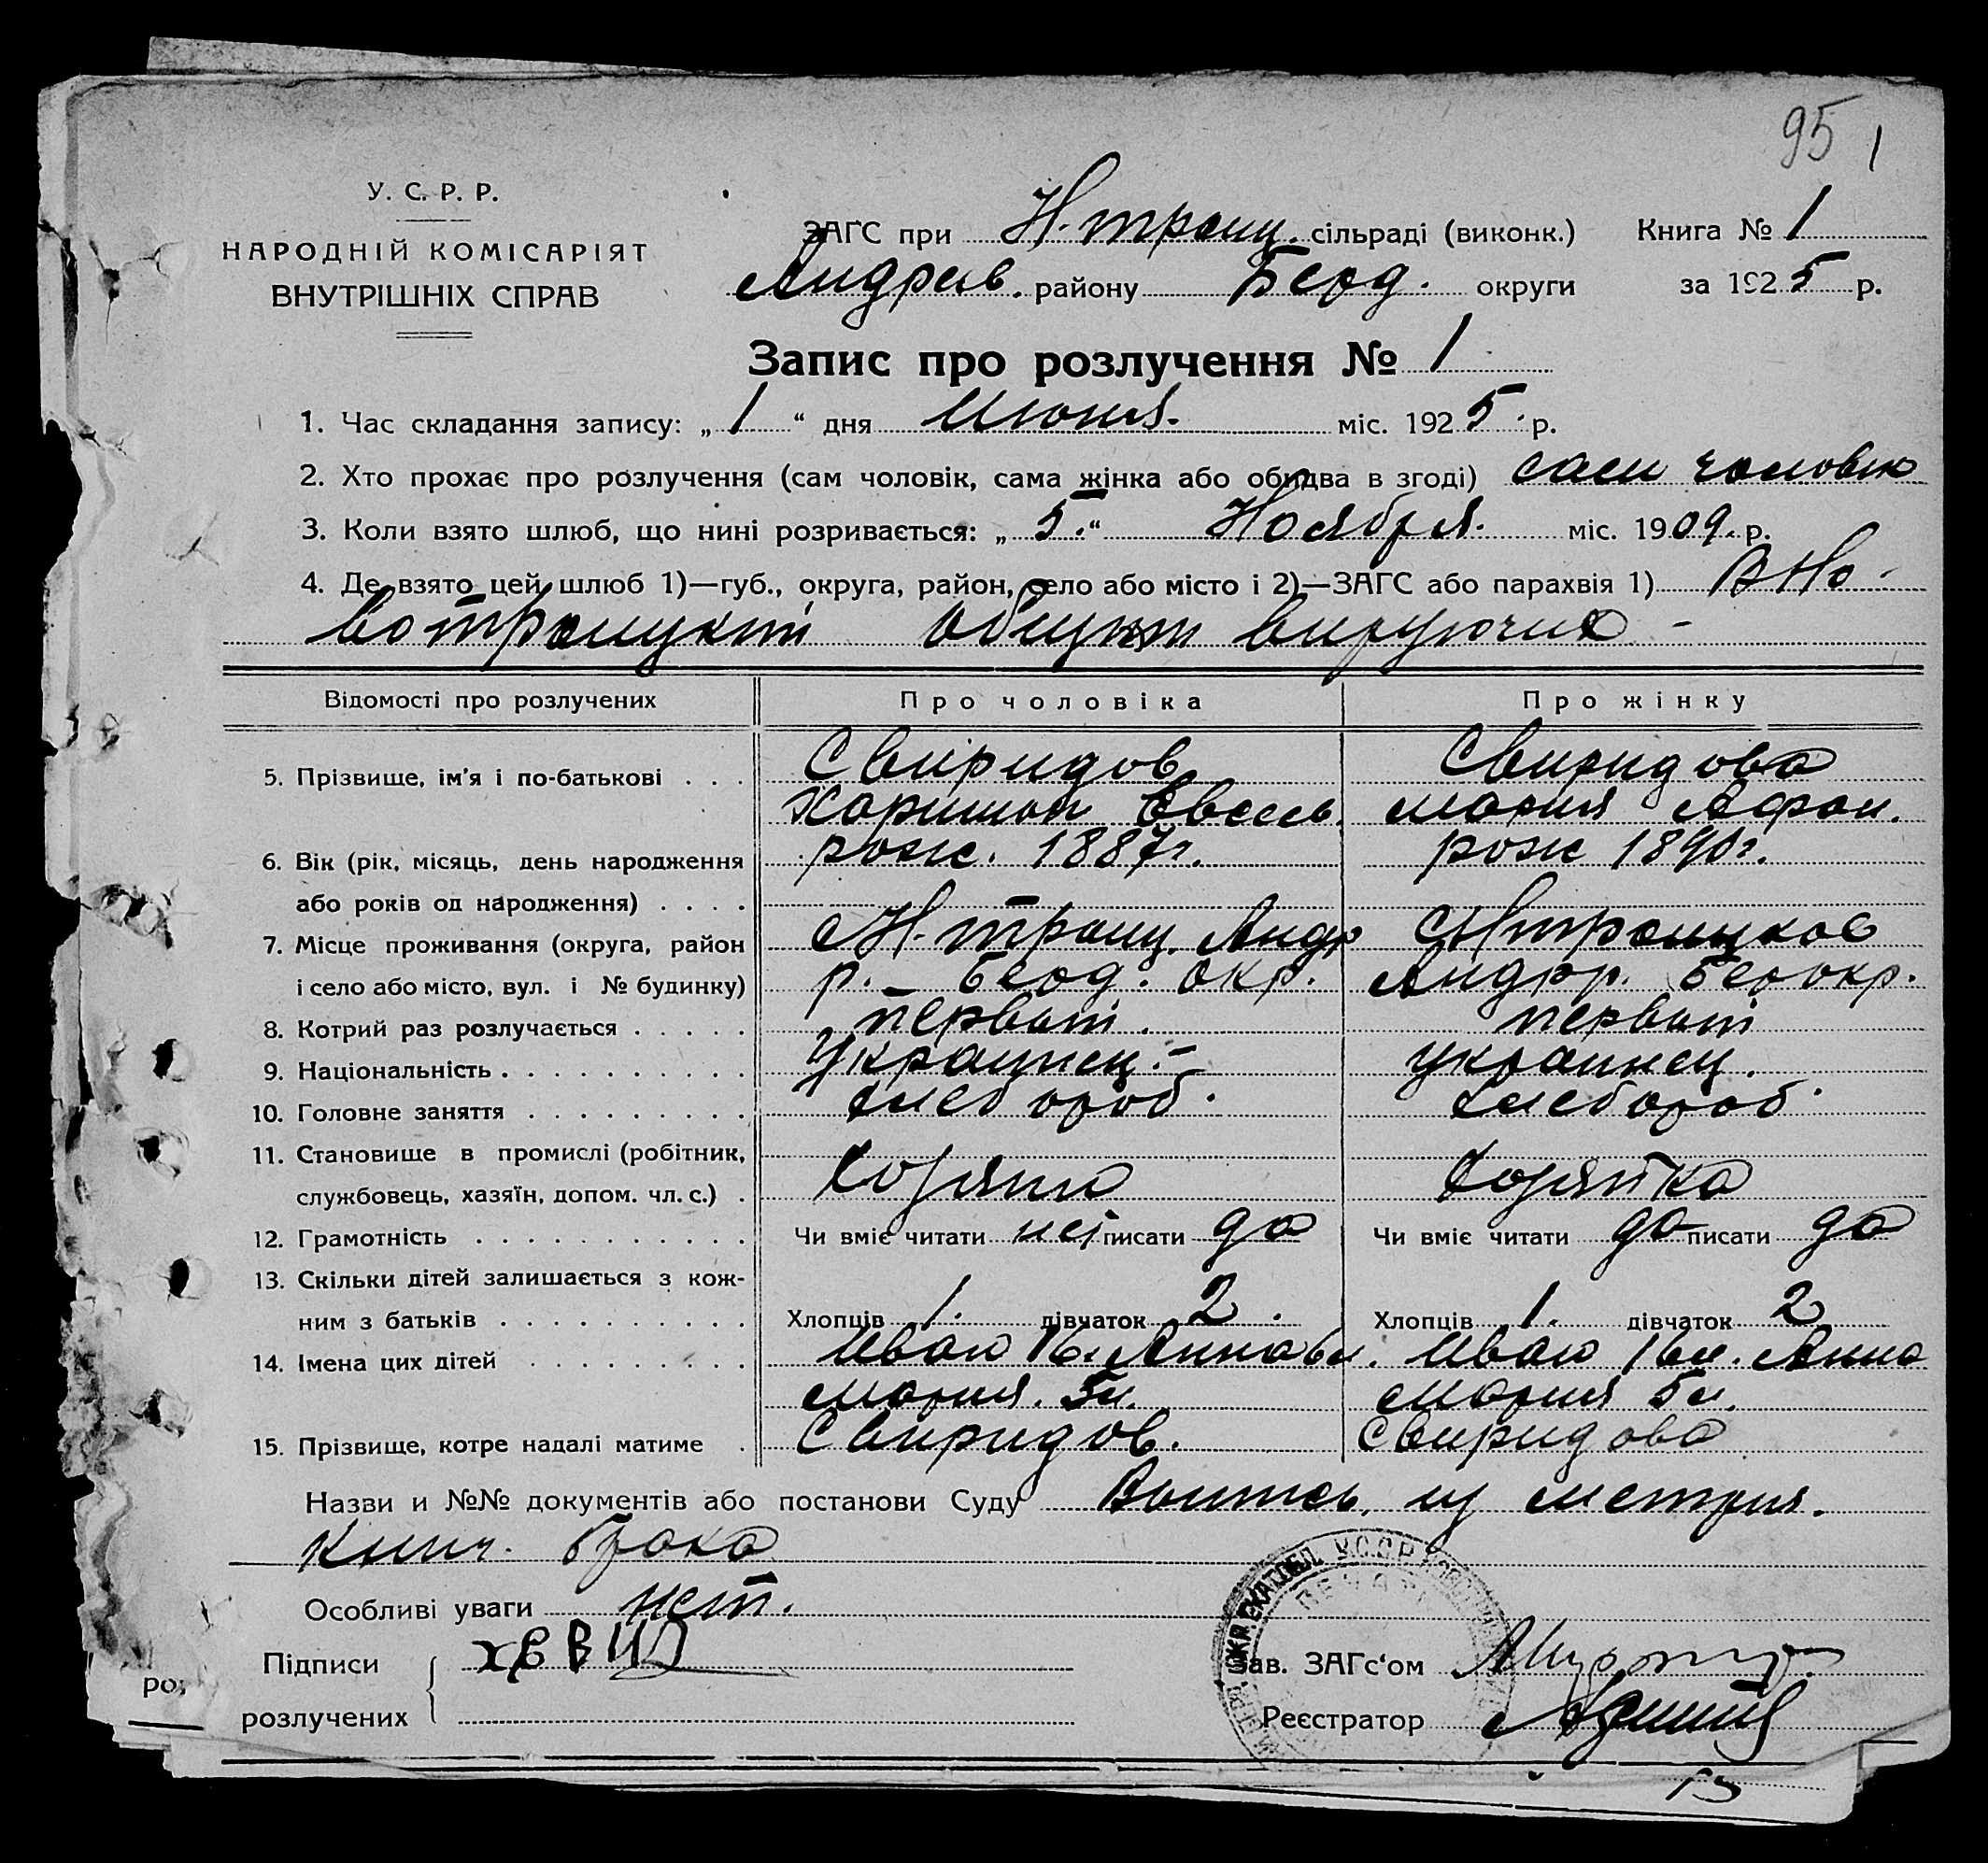 95 1
У. С. Р. Р.
НАРОДНІЙ КОМІСАРІЯТ
ВНУТРІШНІХ СПРАВ
ЗАГС при Н-троиц. сільраді (виконк.) Книга № 1
Андреев. району Берд. округи за 1925 р.
Запис про розлучення № 1
1. Час складання запису: „1“ дня Июня. міс. 1925 р.
2. Хто прохає про розлучення (сам чоловік, сама жінка або обидва в згоді) сам чоловик
3. Коли взято шлюб, що нині розривається: „5.“ Ноября. міс. 1909. р.
4. Де взято цей шлюб 1)—губ., округа, район, село або місто і 2)—ЗАГС або парахвія 1) В Но-
вотроицкий общин вируючих -
Відомості про розлучених Про чоловіка Про жінку
5. Прізвище, ім'я і по-батькові . . . Свиридов Свиридова
Харитон Евсев. Мария Афан.
6. Вік (рік, місяць, день народження рож. 1887г. рож 1890г.
або років од народження) . . . .
7. Місце проживання (округа, район с Н-троиц. Андр с Нтроицкое
і село або місто, вул. і № будинку) р. - Берд. окр. Андр р. Бер окр.
8. Котрий раз розлучається . . . . . первый. первый
9. Національність . . . . . . . . . . Украинец. - украинец.
10. Головне заняття . . . . . . . . . хлебороб. хлебороб.
11. Становище в промислі (робітник,
службовець, хазяїн, допом. чл. с.) . Хозяин Хозяйка
12. Грамотність . . . . . . . . . . . Чи вміє читати нет писати да Чи вміє читати да писати да
13. Скільки дітей залишається з кож-
ним з батьків . . . . . . . . . . . Хлопців 1. дівчаток 2. Хлопців 1. дівчаток 2
14. Імена цих дітей . . . . . . . . . Иван 16. Анна 6л. Иван 16л. Анна
Мария. 5л. Мария 5л.
15. Прізвище, котре надалі матиме . Свиридов. Свиридова
Назви и №№ документів або постанови Суду Выпись из метрич.
книг. брака
Особливі уваги нет.
Підписи
розлучених
Зав. ЗАГс‘ом
Реєстратор